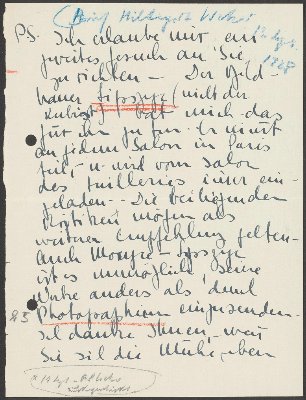 Brief Hildegard Weber
12 Sept. 1928
PS. Ich erlaube mir ein
zweites Gesuch an Sie,
zu richten – Der Bild-
hauer Lipszyc (nicht der
Kubist) bat mich das
für ihn zu tun. Er nimmt
an jedem Salon in Paris
teil, u. wird vom Salon
des Tuileries immer ein-
geladen – Die beiliegenden
Kritiken mögen als
weitere Empfehlung gelten –
Auch Monsieur Lipszyc
ist es unmöglich seine
Werke anders als durch
Photographieen einzusenden –
Ich danke Ihnen, wenn
Sie sich die Mühe eben